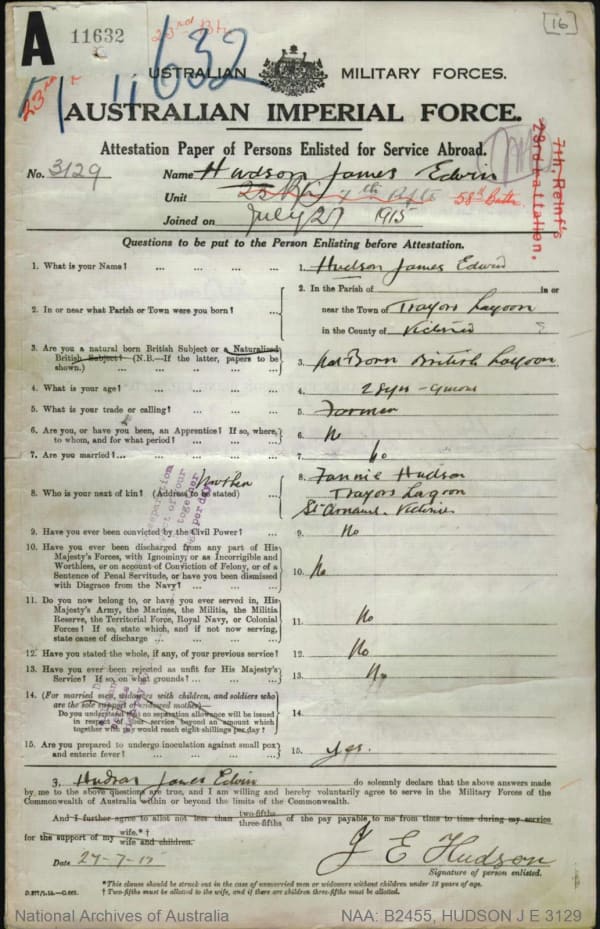 [16]
A 11632 23rd Bt
11632
23rd
AUSTRALIAN MILITARY FORCES.
AUSTRALIAN IMPERIAL FORCE.
Attestation Paper of Persons Enlisted for Service Abroad.
7th. Reinf's
23rd Battalion.
No. 3129 Name Hudson James Edwin
Unit 23 Btn 7th Refts 58th Battn
Joined on July 27 1915
Questions to be put to the Person Enlisting before Attestation.
1. What is your Name? ... ... ... ... 1. Hudson James Edwin
2. In or near what Parish or Town were you born? ... 2. In the Parish of in or
near the Town of Traynors Lagoon
in the County of Victoria
3. Are you a natural born British Subject or a Naturalized
British Subject? (N.B.—If the latter, papers to be
shown.) ... ... ... ... 3. Nat Born British
4. What is your age? ... ... ... ... 4.
5. What is your trade or calling? ... ... ... 5. Farmer
6. Are you, or have you been, an Apprentice? If so, where,
to whom, and for what period? ... ... ... 6. No
7. Are you married?... ... ... ... ... 7. No
8. Who is your next of kin? (Address to be stated) ... Mother 8. Fannie Hudson
Traynors Lagoon
St Arnaud. Victoria
9. Have you ever been convicted by the Civil Power? ... 9. No
10. Have you ever been discharged from any part of His
Majesty's Forces, with Ignominy, or as Incorrigible and
Worthless, or on account of Conviction of Felony, or of a
Sentence of Penal Servitude, or have you been dismissed
with Disgrace from the Navy? ... ... ... 10. No
11. Do you now belong to, or have you ever served in, His
Majesty's Army, the Marines, the Militia, the Militia
Reserve, the Territorial Force, Royal Navy, or Colonial
Forces? If so, state which, and if not now serving,
state cause of discharge ... ... ... ... 11. No
12. Have you stated the whole, if any, of your previous service? 12. No
13. Have you ever been rejected as unfit for His Majesty's
Service? If so, on what grounds? ... ... ... 13. No
14. (For married men, widowers with children, and soldiers who
are the sole support of widowed mother)—
Do you understand that no separation allowance will be issued
in respect of your service beyond an amount which
together with pay would reach eight shillings per day? 14.
15. Are you prepared to undergo inoculation against small pox
and enteric fever? ... ... ... ... 15. Yes.
I, Hudson James Edwin do solemnly declare that the above answers made
by me to the above questions are true, and I am willing and hereby voluntarily agree to serve in the Military Forces of the
Commonwealth of Australia within or beyond the limits of the Commonwealth.
And I further agree to allot not less than two-fifths three-fifths of the pay payable to me from time to time during my service
for the support of my wife.*† wife and children.
Date 27-7-15 J E Hudson
Signature of person enlisted.
*This clause should be struck out in the case of unmarried men or widowers without children under 18 years of age.
† Two-fifths must be allotted to the wife, and if there are children three-fifths must be allotted.
National Archives of Australia NAA: B2455, HUDSON J E 3129